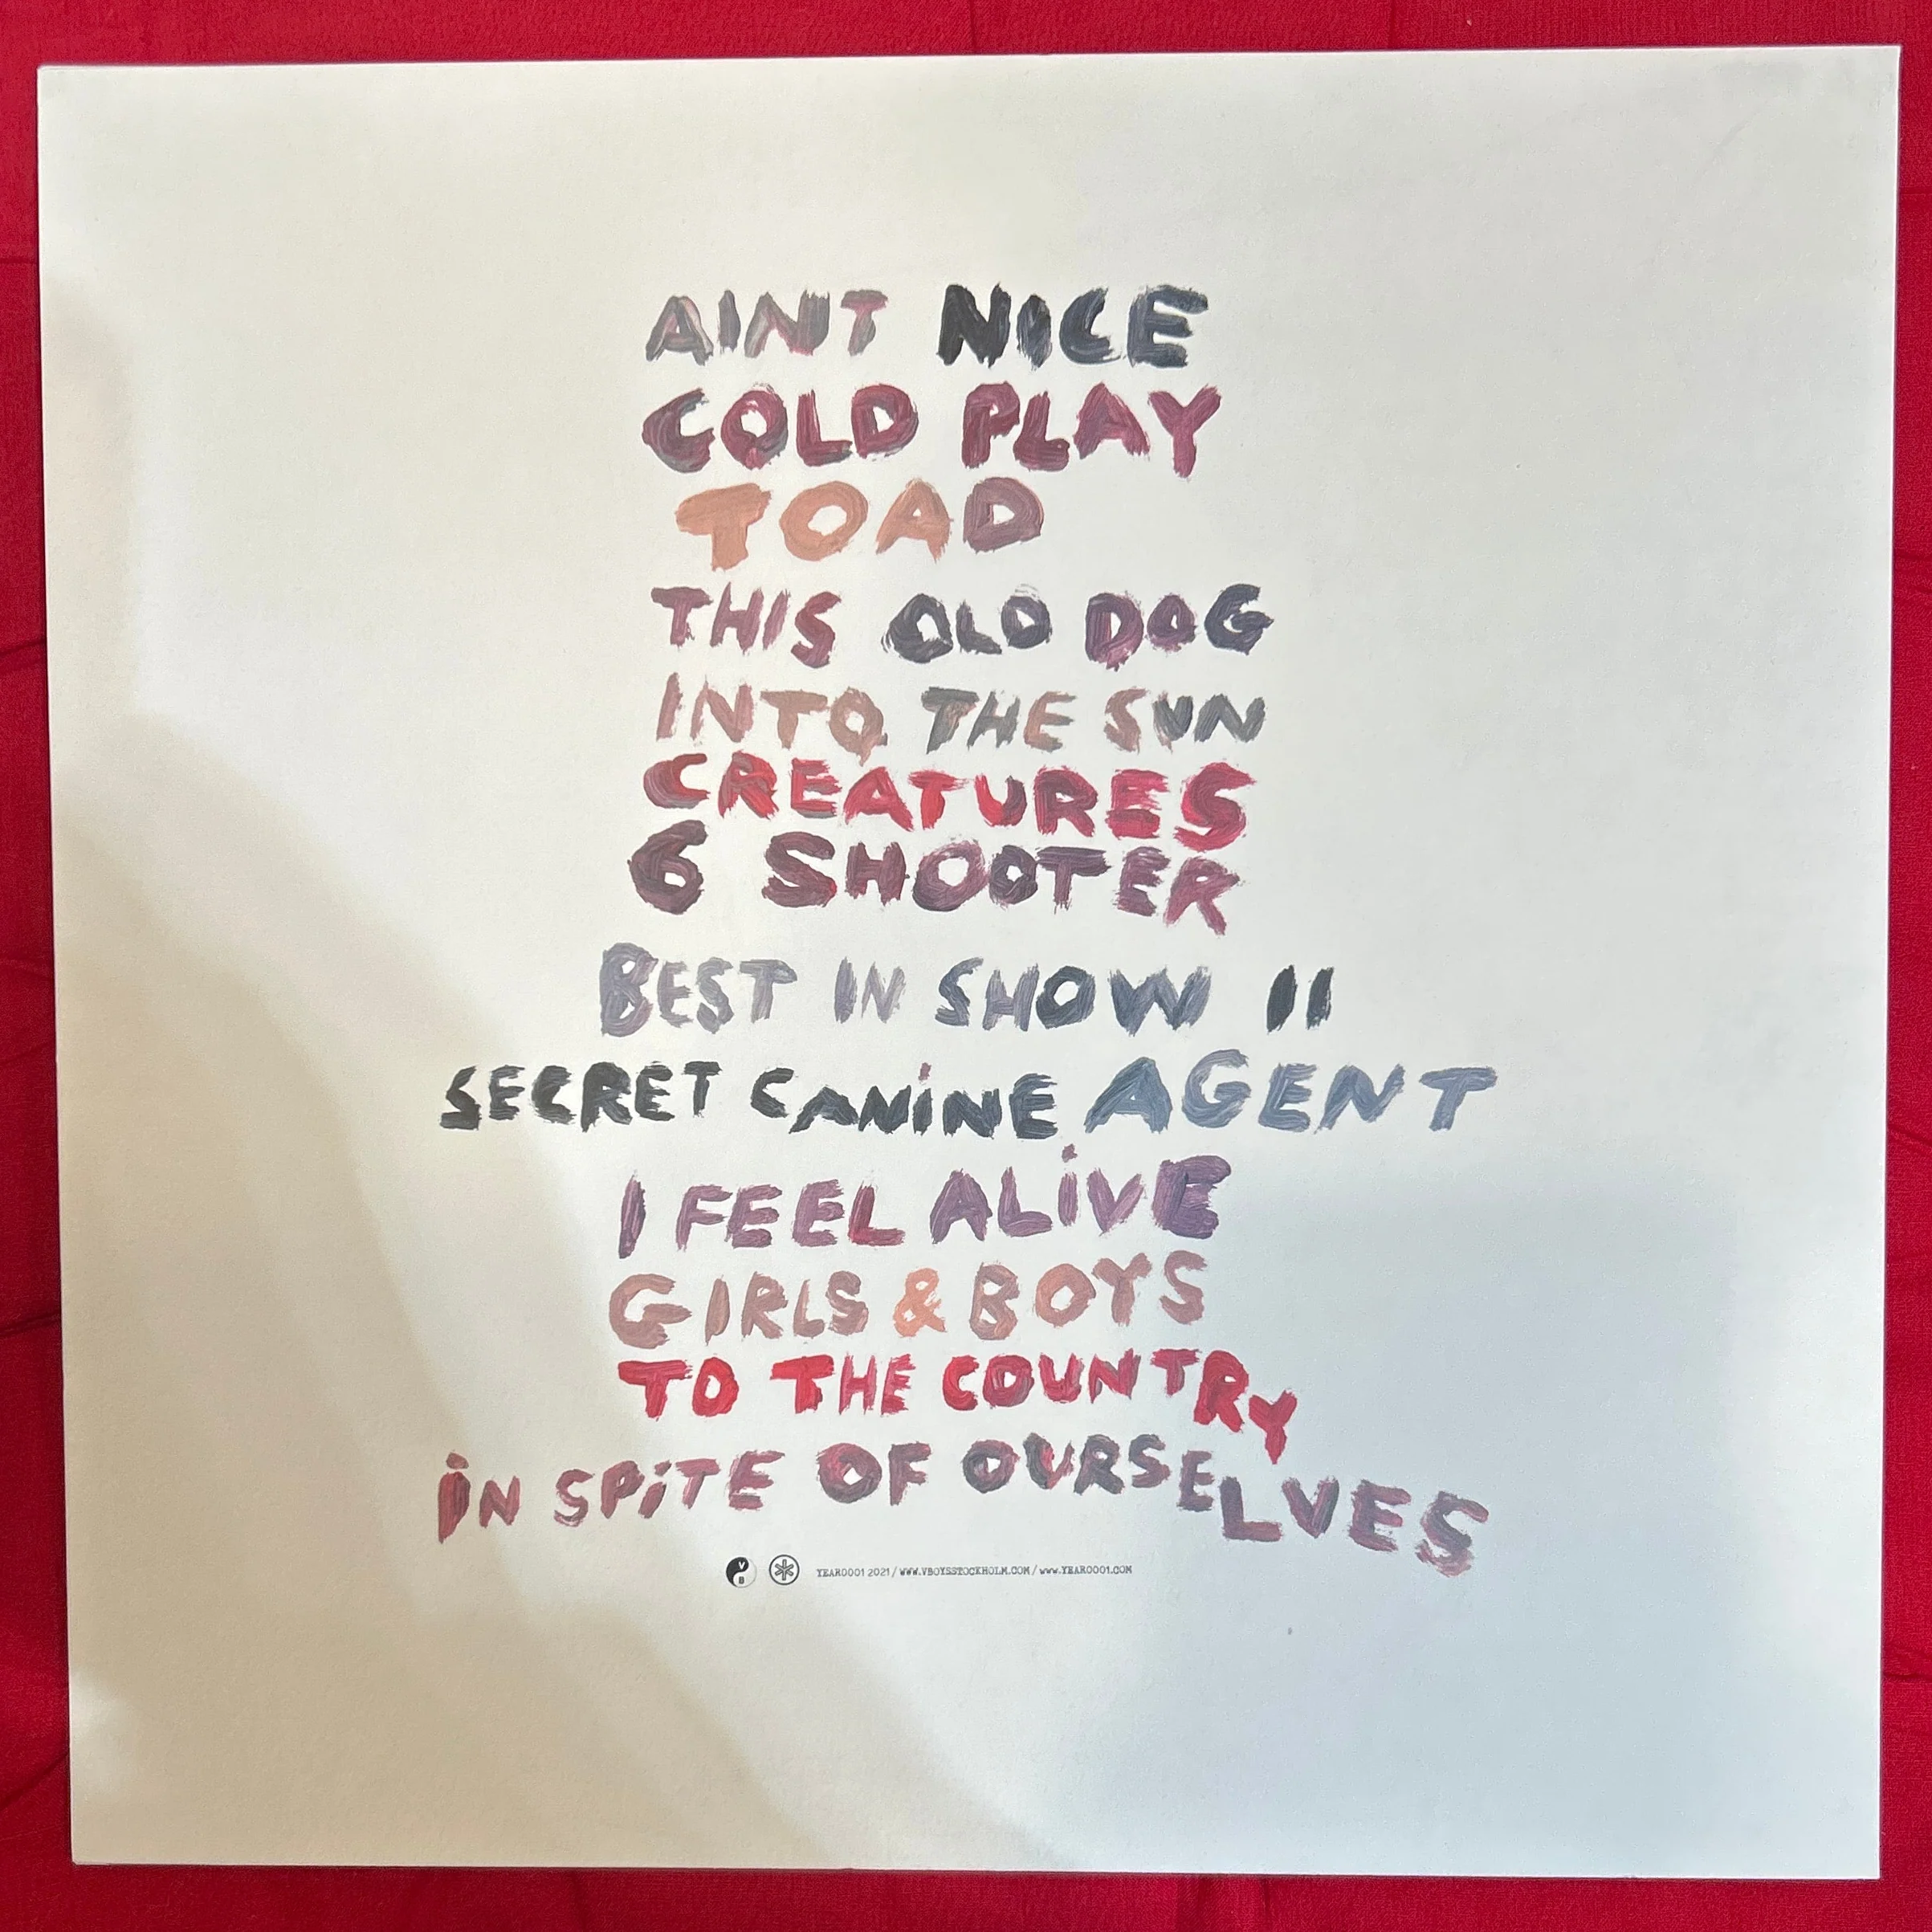 AINT NICE
COLD PLAY
TOAD
THIS OLD DOG
INTO THE SUN
CREATURES
6 SHOOTER
BEST IN SHOW II
SECRET CANiNE AGENT
I FEEL ALiVE
GIRLS & BOYS
TO THE COUNTRY
iN SPiTE OF OURSELVES
V B YEAR0001 2021 / WWW.VBOYSSTOCKHOLM.COM / WWW.YEAR0001.COM